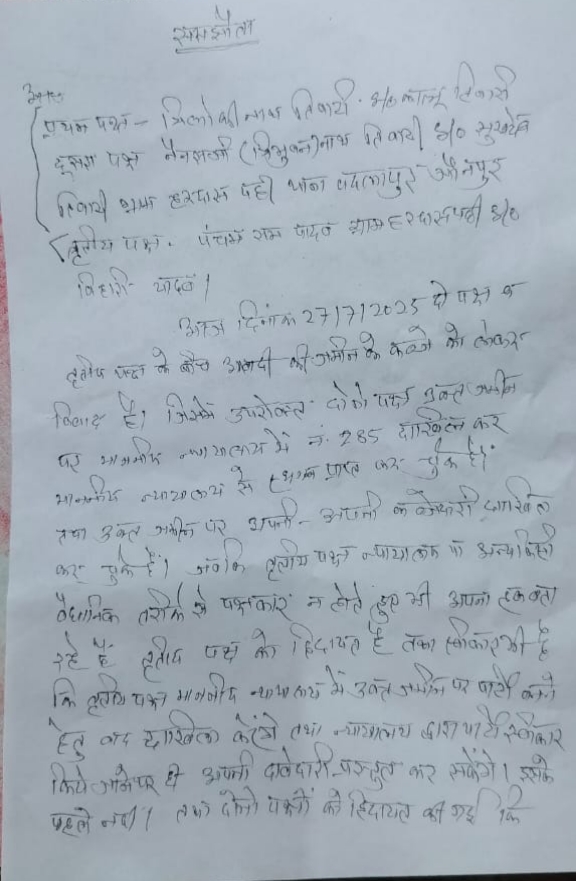 समझौता
प्रथम पक्ष - त्रिलोकी नाथ तिवारी S/O कालू तिवारी
दूसरा पक्ष नैनशजी (त्रिभुवन) नाथ तिवारी S/O सुखदेव
तिवारी ग्राम हरदासपट्टी थाना बदलापुर जौनपुर
तृतीय पक्ष. पंचम राम यादव ग्राम हरदासपट्टी S/O
बिहारी यादव।
आज दिनांक 27/7/2025 दो पक्ष व
तृतीय पक्ष के बीच आबादी की जमीन के कब्जे को लेकर
विवाद है। जिसमें उपरोक्त दोनों पक्ष उक्त जमीन
पर माननीय न्यायालय में नं. 285 दाखिल कर
माननीय न्यायालय से स्थगन प्राप्त कर चुके हैं।
तथा उक्त जमीन पर अपनी - अपनी दाखिल
कर चुके हैं। जबकि तृतीय पक्ष न्यायालय या अन्य किसी
वैधानिक तरीके से पक्षकार न होते हुए भी अपना हक बता
रहे हैं तृतीय पक्ष को हिदायत है तथा स्वीकार भी है
कि तृतीय पक्ष माननीय न्यायालय में उक्त जमीन पर पार्टी बनने
हेतु वाद दाखिल करेंगे तथा न्यायालय द्वारा पार्टी स्वीकार
किये जाने पर ही अपनी दावेदारी प्रस्तुत कर सकेंगे। इसके
पहले नहीं। तथा दोनों पक्षों को हिदायत की गई कि